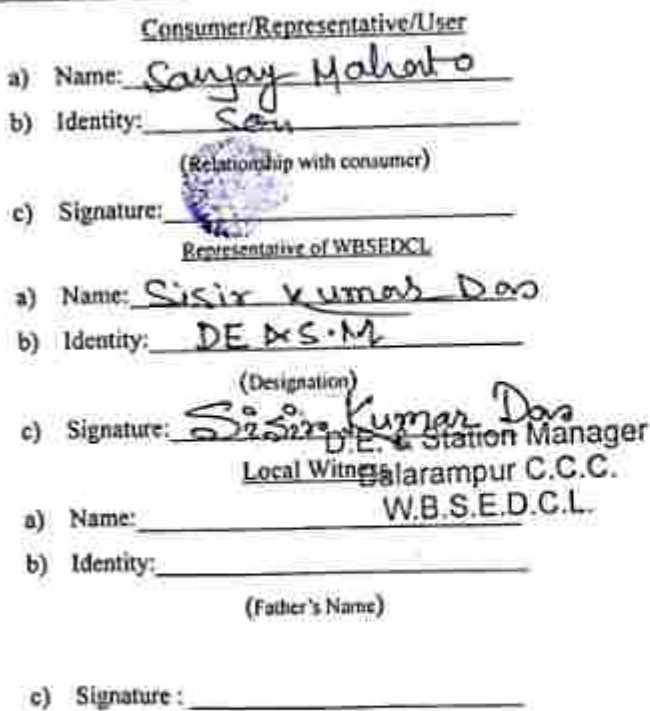 Consumer/Representative/User
a) Name: Sanjay Mahato
b) Identity: Son
(Relationship with consumer)
c) Signature:
Representative of WBSEDCL
a) Name: Sisir Kumar Das
b) Identity: DE & S.M
(Designation)
c) Signature: Sisir Kumar Das
D.E. & Station Manager
Local Witness
Balarampur C.C.C.
W.B.S.E.D.C.L.
a) Name:
b) Identity:
(Father's Name)
c) Signature :